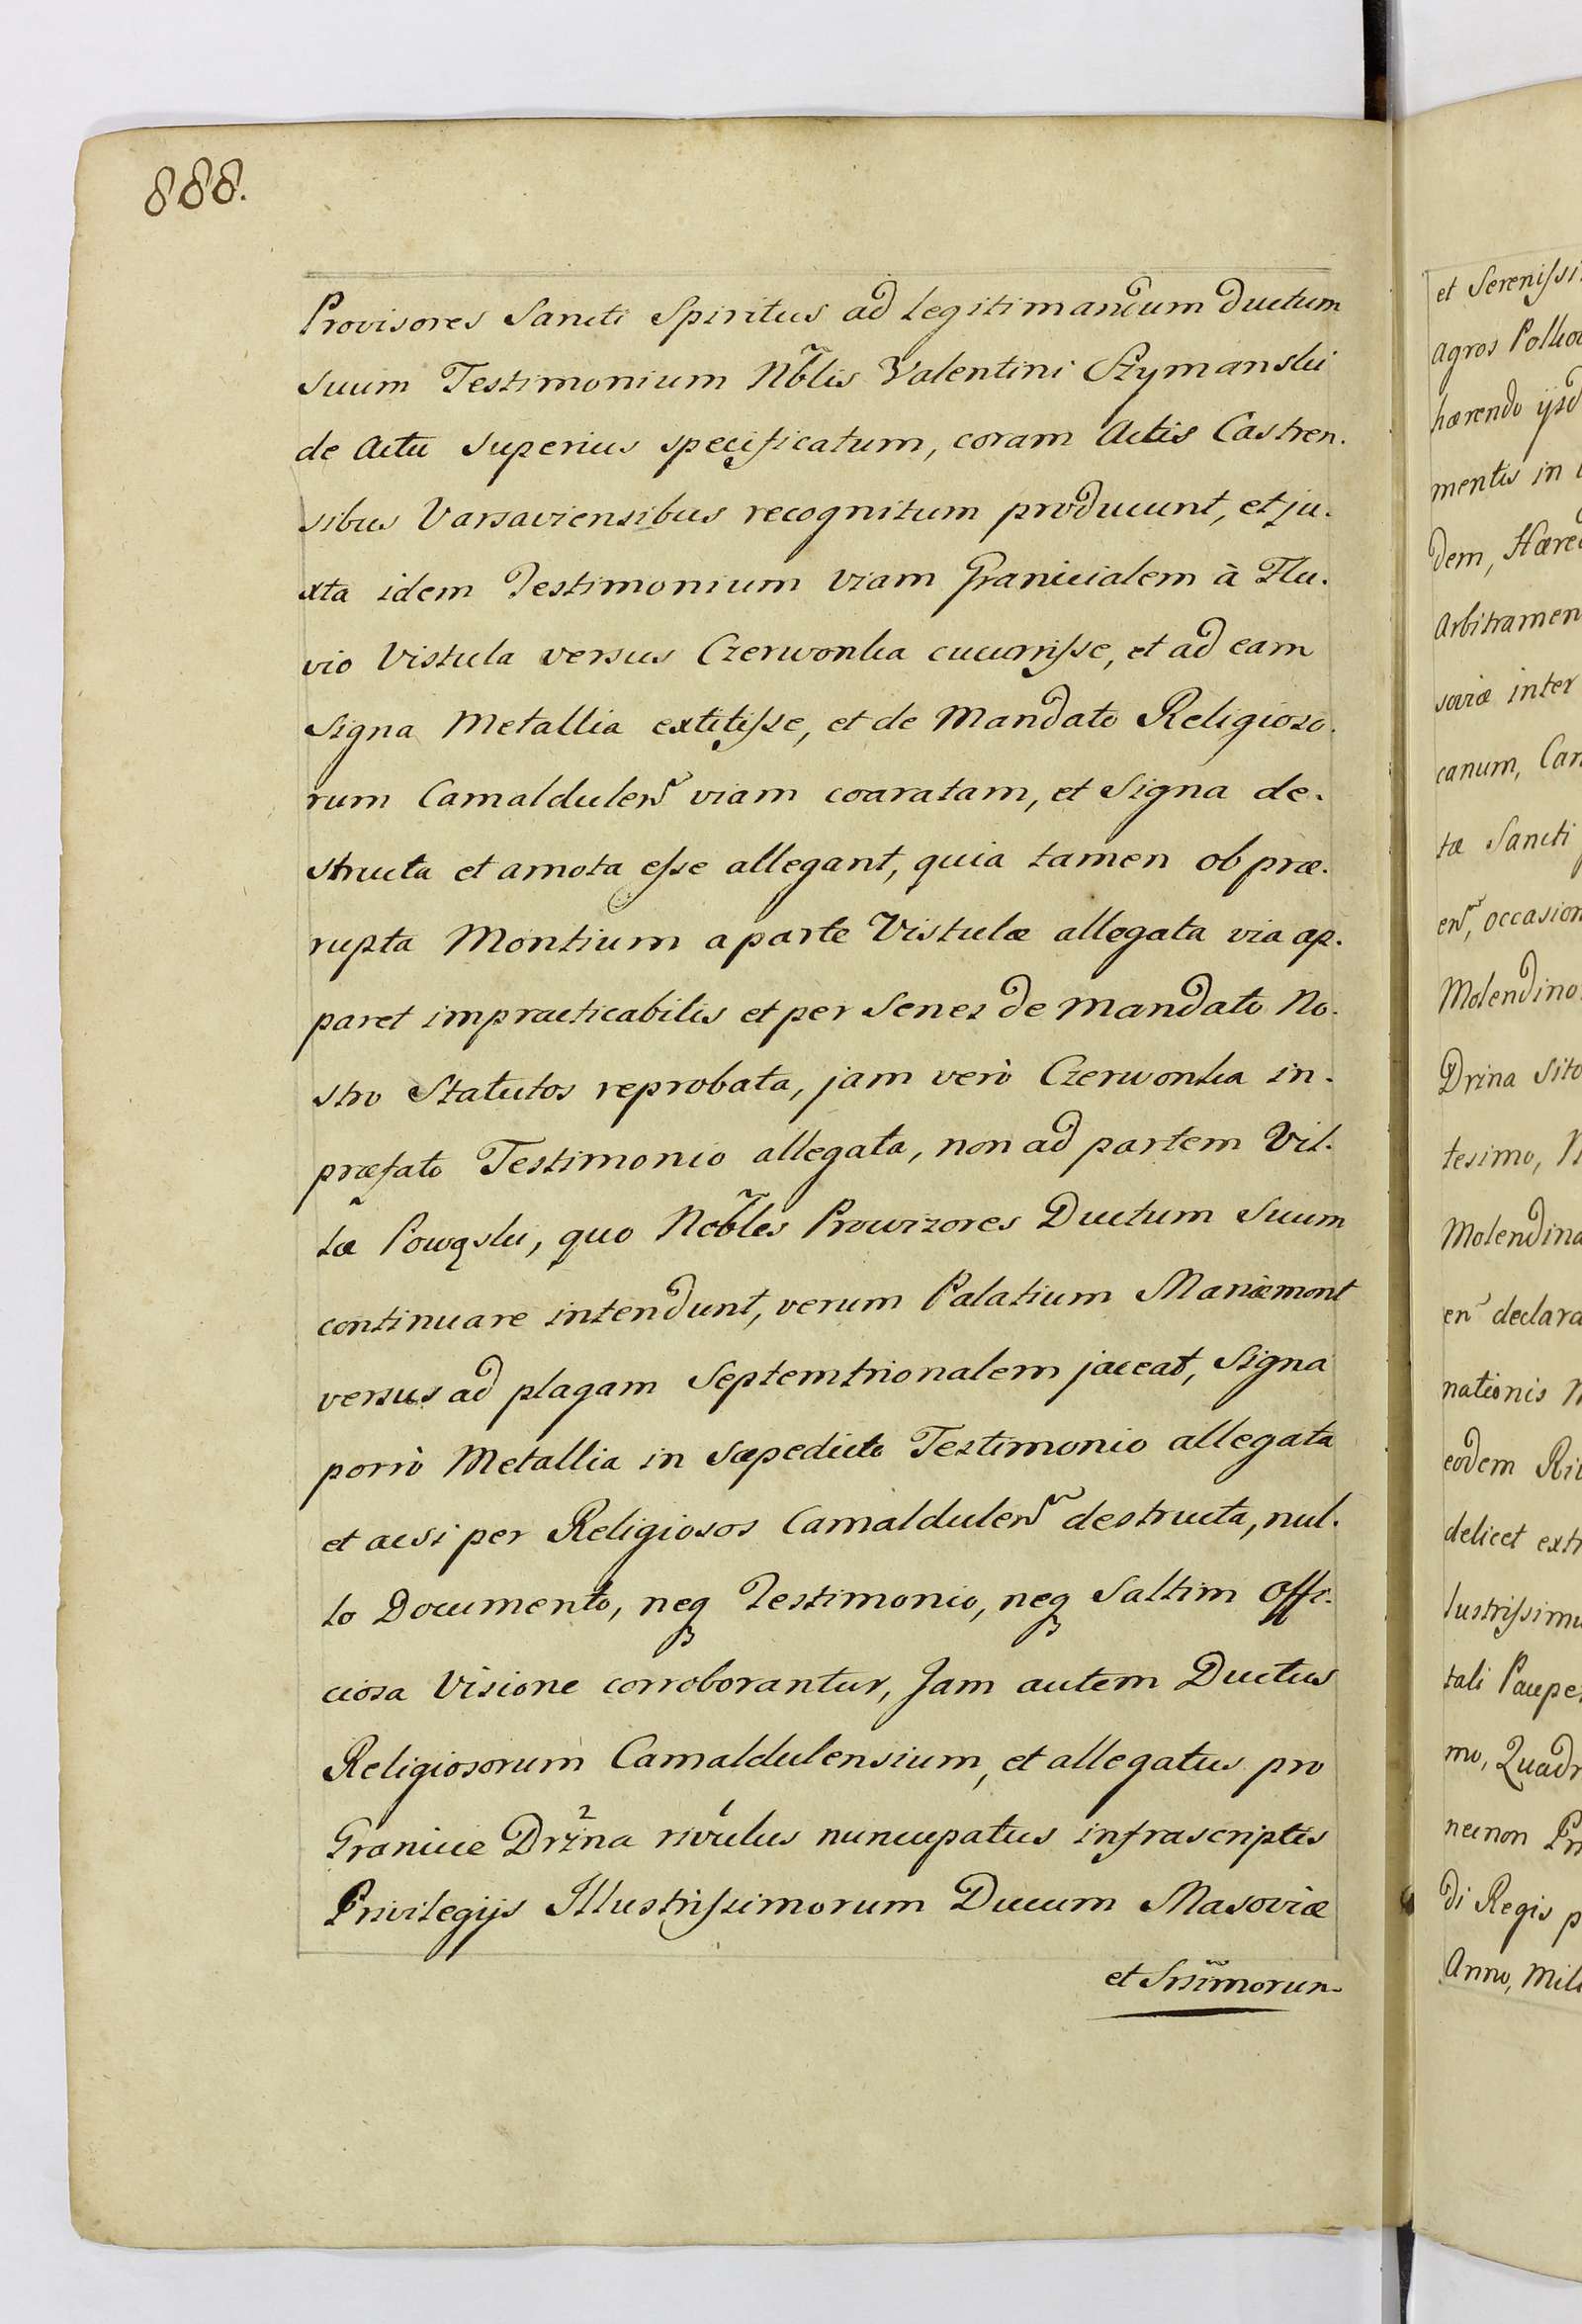 888.
Provisores Sancti Spiritus ad legitimandum ductum
suum Testimonium Nb̃lis Valentini Szymanski
de Actu superius specificatum, coram Actis Castren-
sibus Varsaviensibus recognitum producunt, et ju-
xta idem Testimonium viam Granicialem à Flu-
vio Vistula versus Czerwonka cucurrisse, et ad eam
Signa Metallia extitisse, et de Mandato Religioso-
rum Camaldulen̄ viam coaratam, et Signa de-
structa et amota esse allegant, quia tamen ob præ-
rupta Montium a parte Vistulæ allegata via ap-
paret impracticabilis et per Senes de Mandato No-
stro Statutos reprobata, jam verò Czerwonka in
præfato Testimonio allegata, non ad partem Vil-
læ Powązki, quo Nob̃les Prowizores Ductum Suum
continuare intendunt, verum Palatium Mariæmont
versus ad plagam Septemtrionalem jaceat, Signa
porrò Metallia in sæpedicto Testimonio allegata
et acsi per Religiosos Camaldulen̄ destructa, nul-
lo Documento, neq Testimonio, neq saltim Offi-
ciosa Visione corroborantur, Jam autem Ductus
Religiosorum Camaldulensium, et allegatus pro
Granicie Drzna rivulus nuncupatus infrascriptis
Privilegijs Illustrissimorum Ducum Masoviæ
et Srñimorum
et Serenissi
agros Polko
hærendo ijsd
mentis in
dem, Hæred
Arbitramen
soviæ inter
canum, Cam
tæ Sancti
en̄, occasion
Molendino
Drzna Sito
tesimo, N
Molendina
en̄ declara
nationis
eodem Riv
delicet extr
lustrissimu
tali Paupe
mo, Quadr
necnon Pri
di Regis p
Anno, Mil